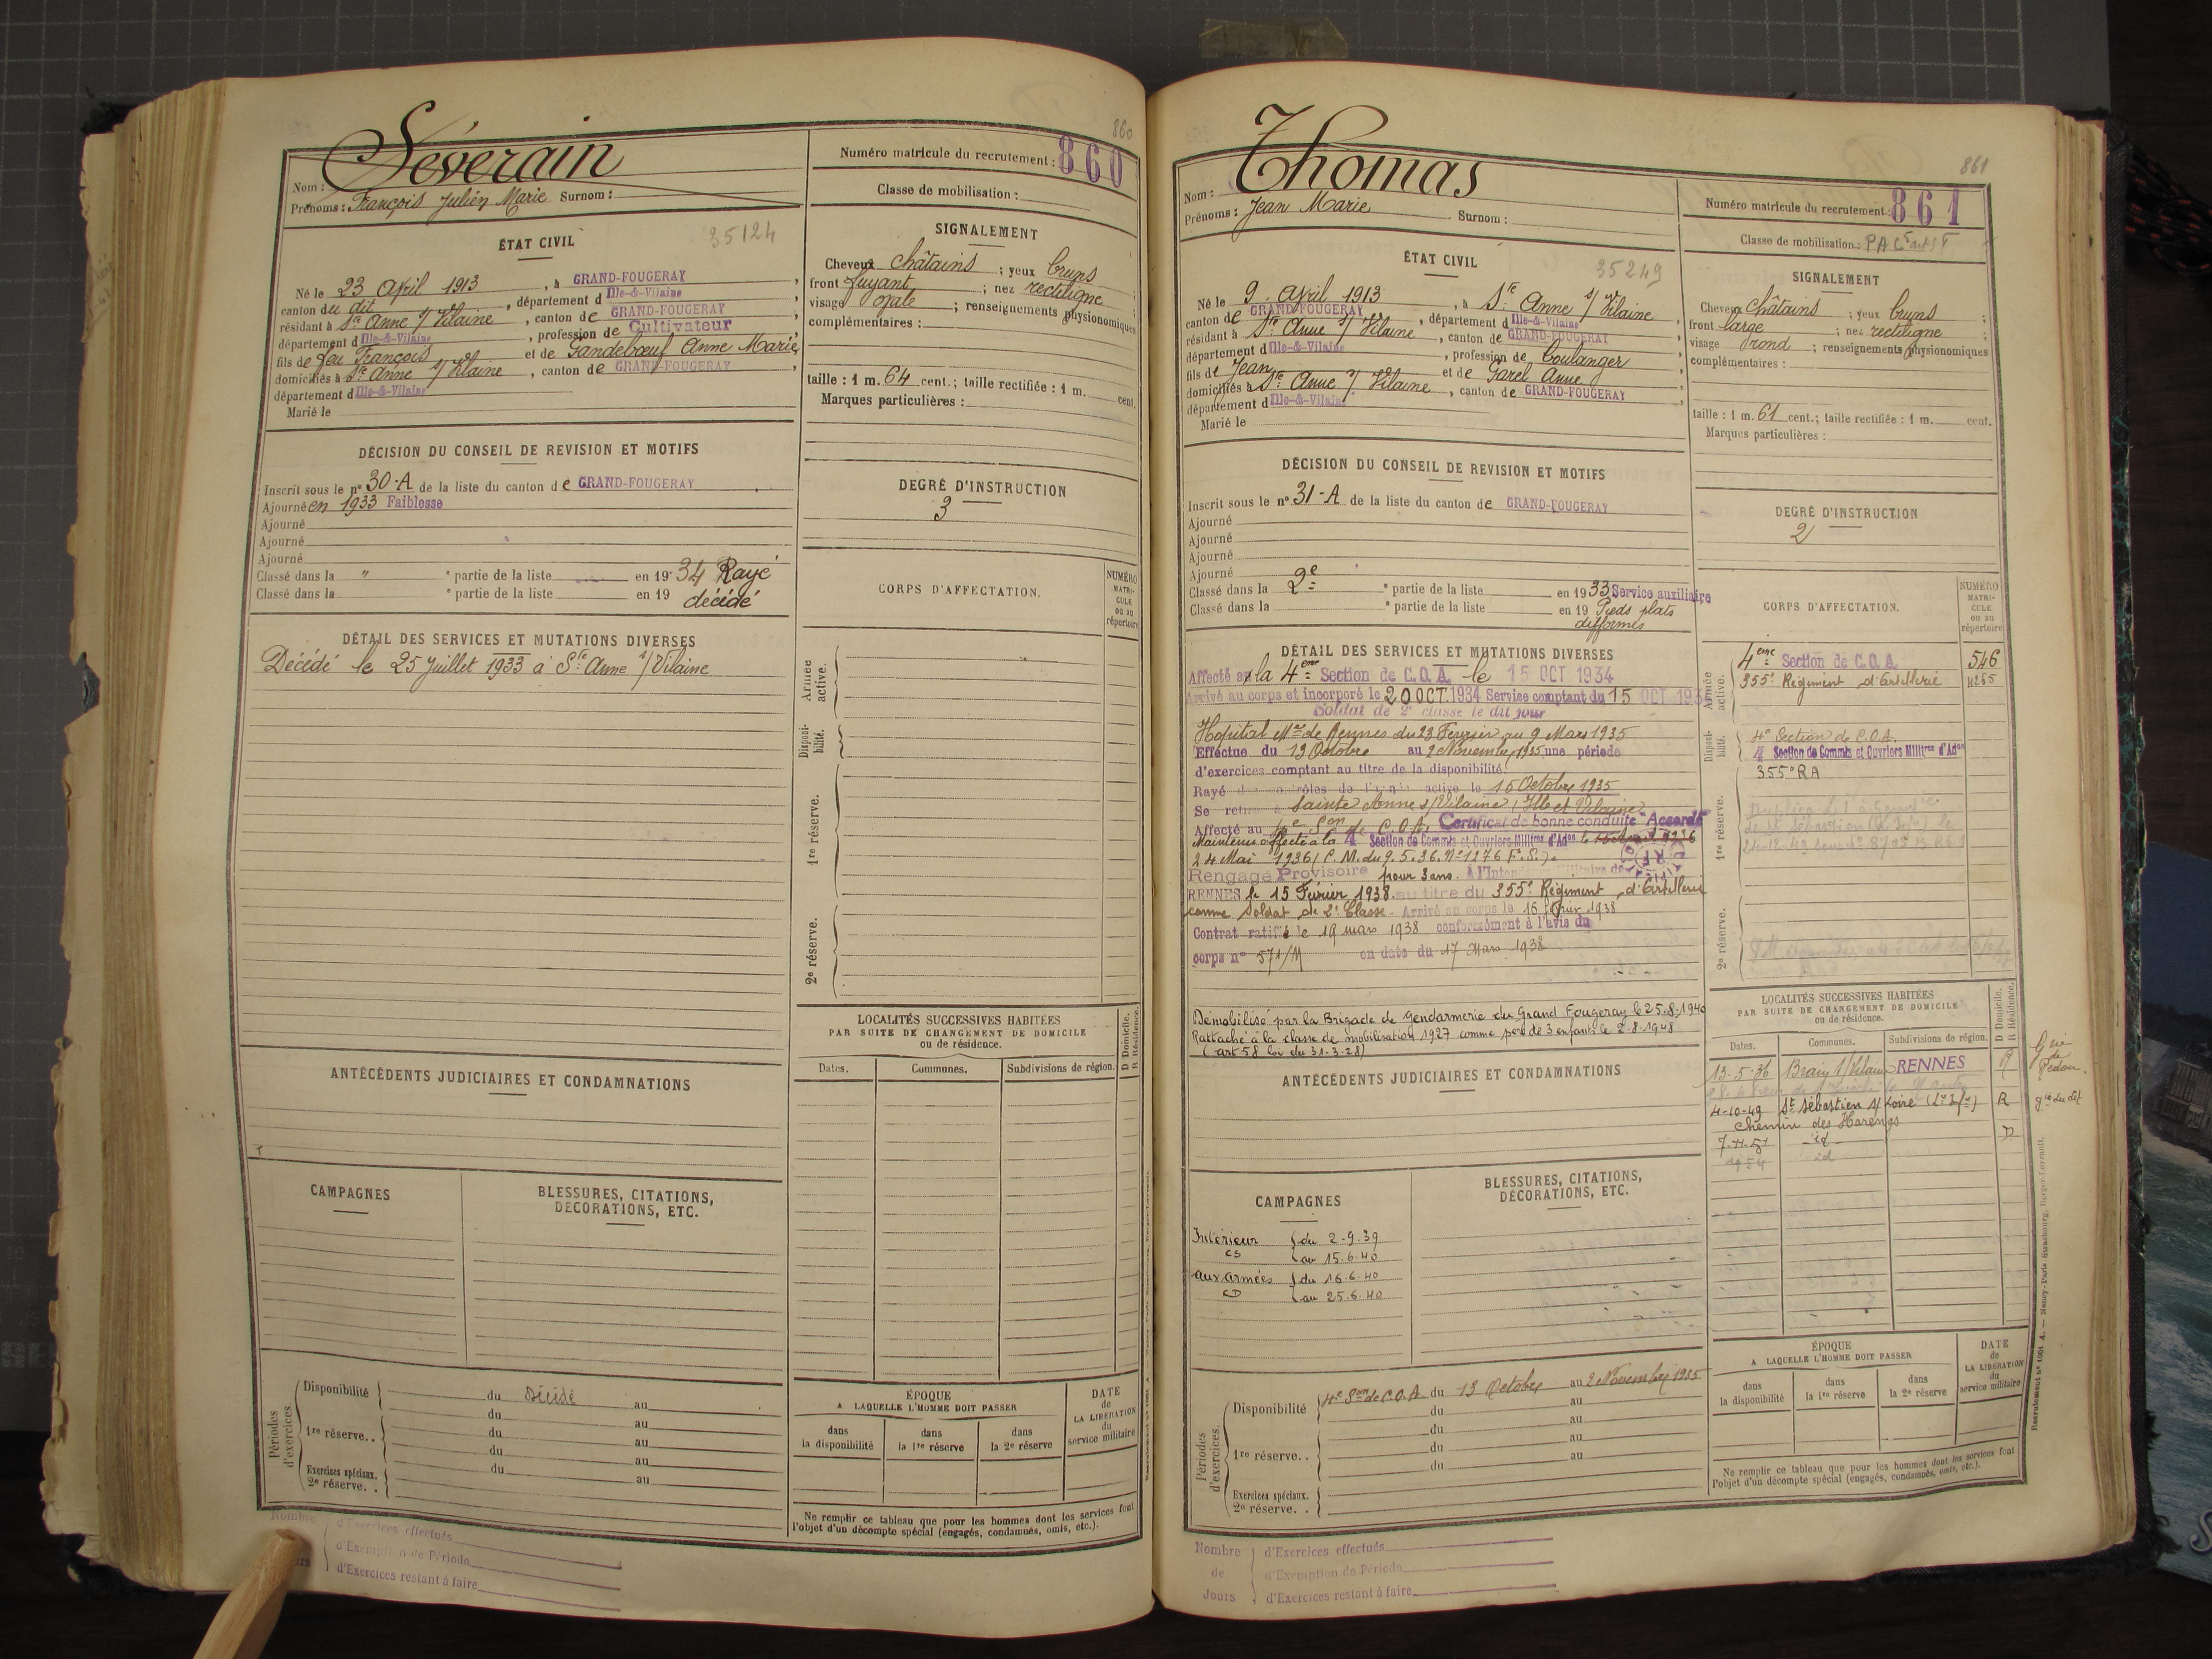 860
Séverain
Nom :
Prénoms : François Julien Marie Surnom :
Numéro matricule du recrutement : 860
Classe de mobilisation :
ÉTAT CIVIL
35124
Né le 23 Avril 1913, à GRAND-FOUGERAY,
canton du dit, département d Ille-&-Vilaine
résidant à Ste Anne s/ Vilaine, canton de GRAND-FOUGERAY,
département d Ille-&-Vilaine, profession de Cultivateur
fils de feu François et de Gandebœuf Anne Marie,
domiciliés à Ste Anne s/ Vilaine, canton de GRAND-FOUGERAY
département d Ille-&-Vilaine
Marié le
SIGNALEMENT
Cheveux châtains ; yeux bruns ;
front fuyant ; nez rectiligne ;
visage ovale ; renseignements physionomiques
complémentaires :
taille : 1 m. 64 cent.; taille rectifiée : 1 m. cent.
Marques particulières :
DÉCISION DU CONSEIL DE REVISION ET MOTIFS
Inscrit sous le n° 30-A de la liste du canton de GRAND-FOUGERAY.
Ajourné en 1933 Faiblesse
Ajourné
Ajourné
Ajourné
Classé dans la " e partie de la liste en 1934 Rayé
Classé dans la e partie de la liste en 19 décédé
DEGRÉ D'INSTRUCTION
3
CORPS D'AFFECTATION.
NUMÉRO
MATRI-
CULE
ou au
répertoire
Armée
active.
Disponi-
bilité.
1re réserve.
2e réserve.
DÉTAIL DES SERVICES ET MUTATIONS DIVERSES
Décédé le 25 Juillet 1933 à Ste Anne s/ Vilaine
LOCALITÉS SUCCESSIVES HABITÉES
PAR SUITE DE CHANGEMENT DE DOMICILE
ou de résidence.
D Domicile.
R Résidence.
Dates. Communes. Subdivisions de région.
ANTÉCÉDENTS JUDICIAIRES ET CONDAMNATIONS
CAMPAGNES
BLESSURES, CITATIONS,
DÉCORATIONS, ETC.
Périodes
d'exercices.
Disponibilité du Décédé au
du au
1re réserve.. du au
du au
Exercices spéciaux. du au
2e réserve. .
ÉPOQUE
A LAQUELLE L'HOMME DOIT PASSER
dans
la disponibilité
dans
la 1re réserve
dans
la 2e réserve
DATE
de
LA LIBÉRATION
du
service militaire
Ne remplir ce tableau que pour les hommes dont les services font
l'objet d'un décompte spécial (engagés, condamnés, omis, etc.).
Nombre
d'Exercices effectués
d'Exemption de Période
d'Exercices restant à faire
861
Thomas
Nom :
Prénoms : Jean Marie Surnom :
Numéro matricule du recrutement : 861
Classe de mobilisation :
ÉTAT CIVIL
35249
Né le 9 Avril 1913, à Ste Anne s/ Vilaine
canton de GRAND-FOUGERAY, département d Ille-&-Vilaine
résidant à Ste Anne s/ Vilaine, canton de GRAND-FOUGERAY,
département d Ille-&-Vilaine, profession de boulanger
fils de Jean et de Garel Anne,
domiciliés à Ste Anne s/ Vilaine, canton de GRAND-FOUGERAY
département d Ille-&-Vilaine
Marié le
SIGNALEMENT
Cheveux châtains ; yeux bruns ;
front large ; nez rectiligne ;
visage rond ; renseignements physionomiques
complémentaires :
taille : 1 m. 61 cent.; taille rectifiée : 1 m. cent.
Marques particulières :
DÉCISION DU CONSEIL DE REVISION ET MOTIFS
Inscrit sous le n° 31-A de la liste du canton de GRAND-FOUGERAY
Ajourné
Ajourné
Ajourné
Ajourné
Classé dans la 2e e partie de la liste en 1933 Service auxiliaire
Classé dans la e partie de la liste en 19 Pieds plats
difformes
DEGRÉ D'INSTRUCTION
2
CORPS D'AFFECTATION.
NUMÉRO
MATRI-
CULE
ou au
répertoire
Armée
active.
4eme Section de C.O.A. 546
355e Régiment d'Artillerie 4265
Disponi-
bilité.
4e Section de C.O.A.
4 Section de Commis et Ouvriers Militres d'Adon
355e RA
1re réserve.
2e réserve.
DÉTAIL DES SERVICES ET MUTATIONS DIVERSES
Affecté à la 4eme Section de C.O.A. le 15 OCT 1934
Arrivé au corps et incorporé le 20 OCT. 1934 Service comptant du 15 OCT 1934
Soldat de 2e classe le dit jour
Hopital Mre de Rennes du 23 Février au 9 Mars 1935
Effectue du 13 Octobre au 2 Novembre 1935 une période
d'exercices comptant au titre de la disponibilité.
Rayé des contrôles de l'armée active le 15 Octobre 1935
Se retire à Sainte Anne s/Vilaine (Ille et Vilaine)
Affecté au 4e Son de C.O.A. Certificat de bonne conduite "Accordé"
Maintenu affecté à la 4 Section de Commis et Ouvriers Militres d'Adon
24 Mai 1936 (C.M. du 9.5.36. N° 1276 F.S.).
Rengagé Provisoire pour 3 ans. À l'Intendance militaire de
RENNES le 15 Février 1938 au titre du 355e Régiment d'Artillerie
comme Soldat de 2e Classe. Arrivé au corps le 16 Février 1938
Contrat ratifié le 19 mars 1938 conformément à l'avis du
corps n° 571/M en date du 17 Mars 1938
Démobilisé par la Brigade de gendarmerie du Grand Fougeray le 25.8.1940
Rattaché à la classe de mobilisation 1927 comme père de 3 enfants le 2.8.1948
(art 58 loi du 31-3-28)
LOCALITÉS SUCCESSIVES HABITÉES
PAR SUITE DE CHANGEMENT DE DOMICILE
ou de résidence.
D Domicile.
R Résidence.
Dates. Communes. Subdivisions de région.
13-5-36 Brain s/Vilaine RENNES R
de
Redon
4-10-49 St Sébastien s/ Loire (Lre Infre) R gie du dit
chemin des Harengs
7.11.51 -id- D
1954 id
ANTÉCÉDENTS JUDICIAIRES ET CONDAMNATIONS
CAMPAGNES
Intérieur du 2-9.39
CS au 15.6.40
aux armées du 16.6.40
CD au 25.6.40
BLESSURES, CITATIONS,
DÉCORATIONS, ETC.
Périodes
d'exercices.
Disponibilité 4e Son de C.O.A. du 13 Octobre au 2 Novembre 1935
du au
du au
1re réserve.. du au
du au
Exercices spéciaux.
2e réserve. .
ÉPOQUE
A LAQUELLE L'HOMME DOIT PASSER
dans
la disponibilité
dans
la 1re réserve
dans
la 2e réserve
DATE
de
LA LIBÉRATION
du
service militaire
Ne remplir ce tableau que pour les hommes dont les services font
l'objet d'un décompte spécial (engagés, condamnés, omis, etc.).
Recrutement n° 1001 A. — Nancy-Paris-Strasbourg, Berger-Levrault.
Nombre
de
Jours
d'Exercices effectués
d'Exemption de Période
d'Exercices restant à faire